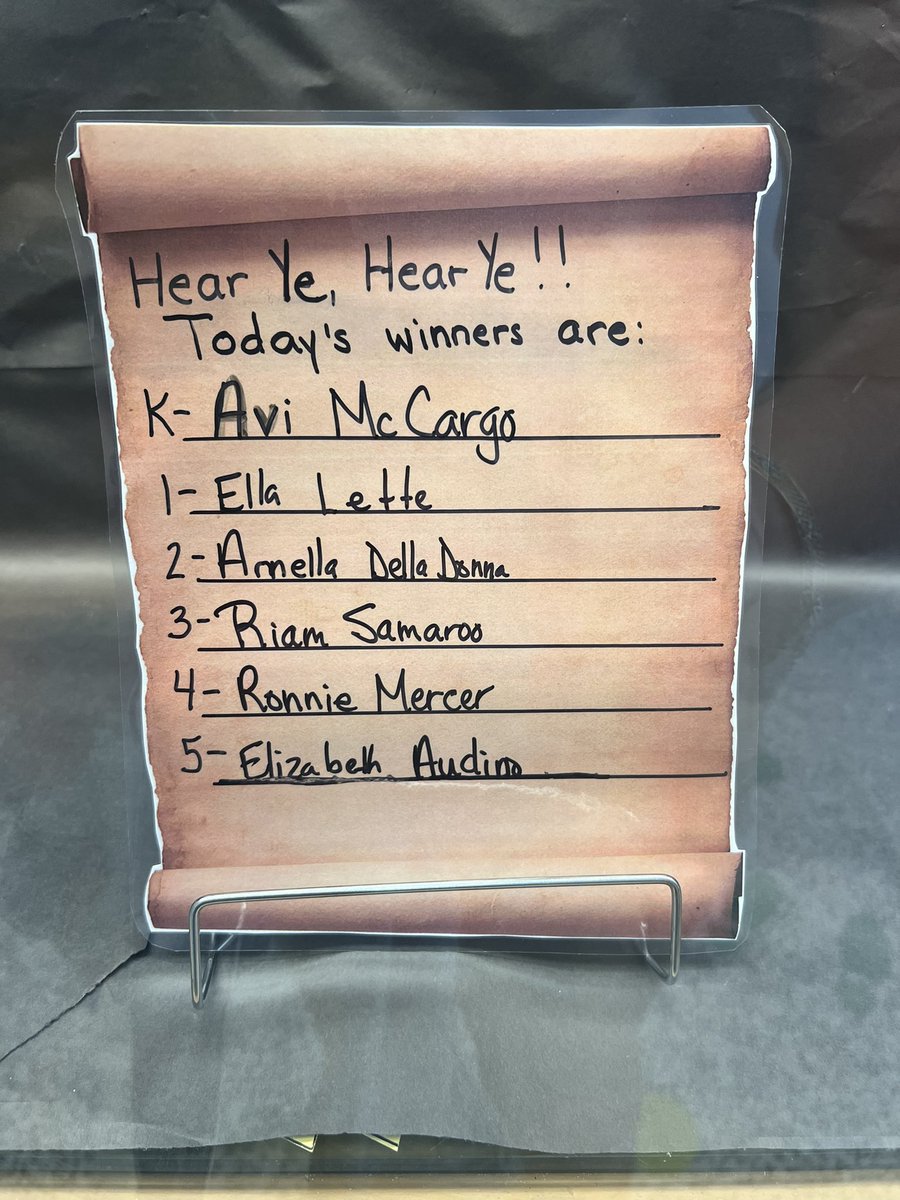 Hear Ye, Hear Ye!!
Today's winners are:
K- Avi McCargo
1- Ella Lette
2- Arnella Della Donna
3- Riam Samaroo
4- Ronnie Mercer
5- Elizabeth Audino